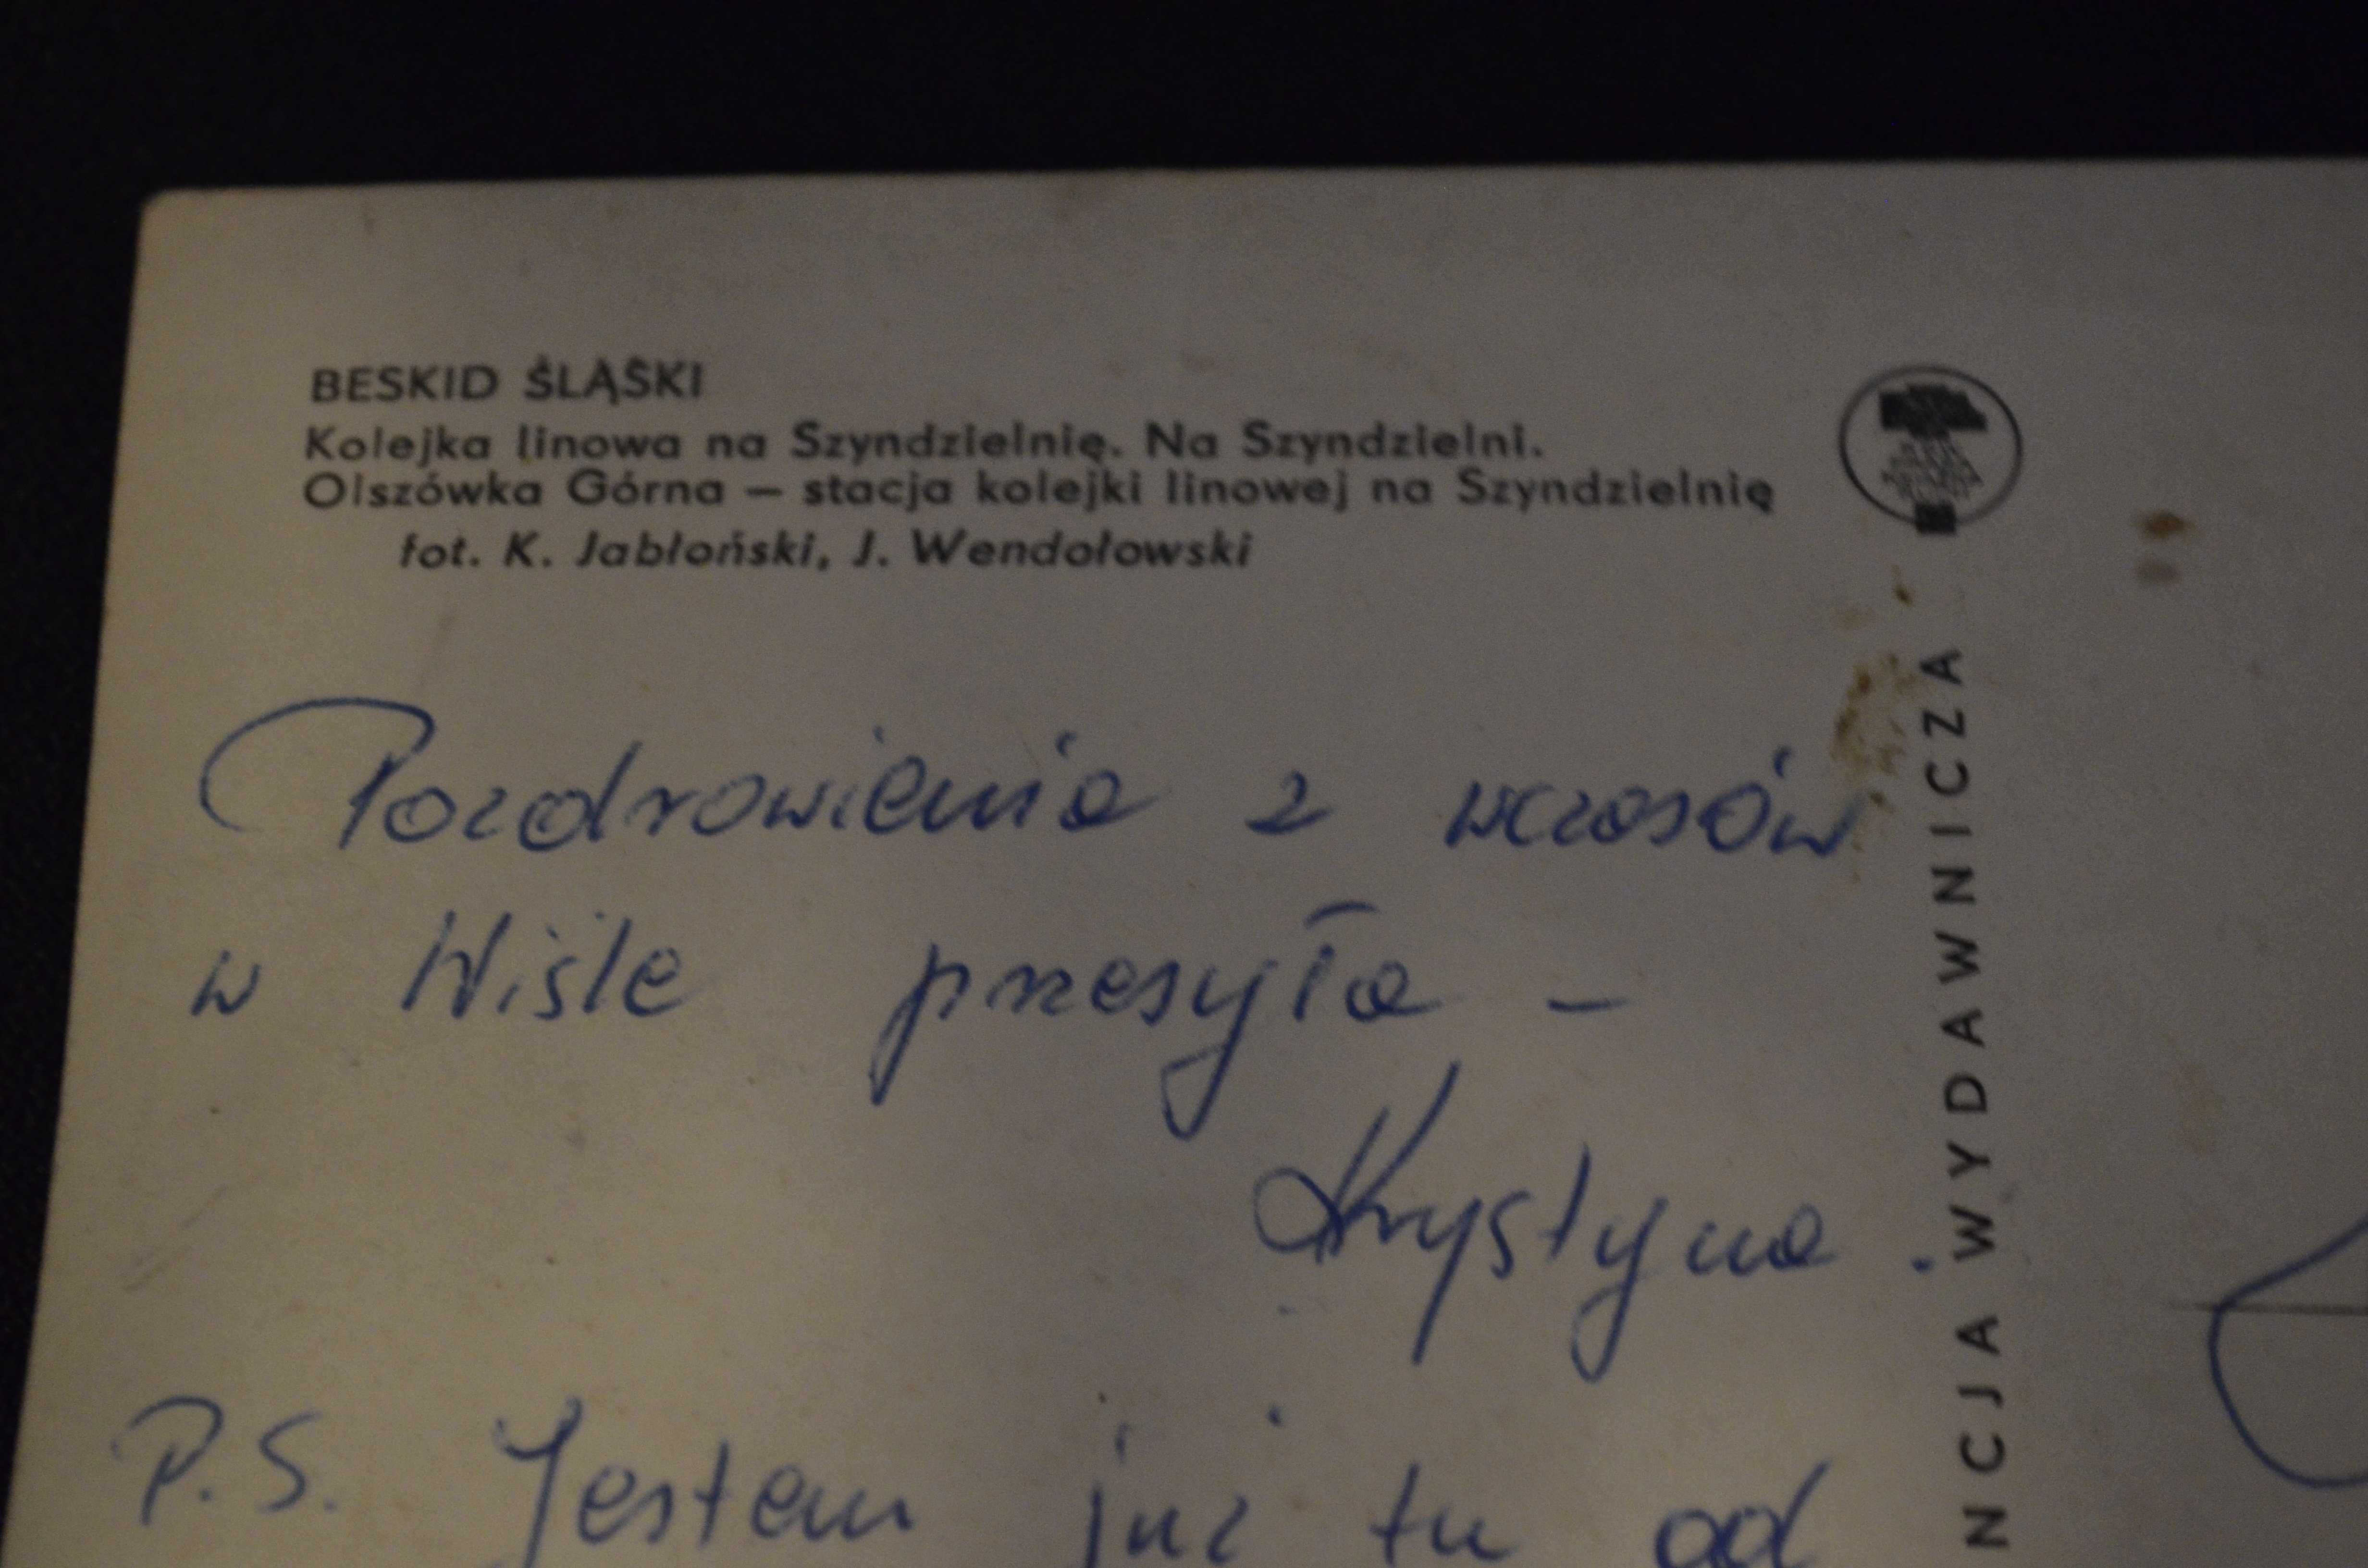 BESKID ŚLĄSKI
Kolejka linowa na Szyndzielnię. Na Szyndzielni.
Olszówka Górna — stacja kolejki linowej na Szyndzielnię
fot. K. Jabłoński, J. Wendołowski
Pozdrowienia z wczasów
w Wiśle przesyła –
Krystyna.
P.S. Jestem już tu od
NCJA WYDAWNICZA